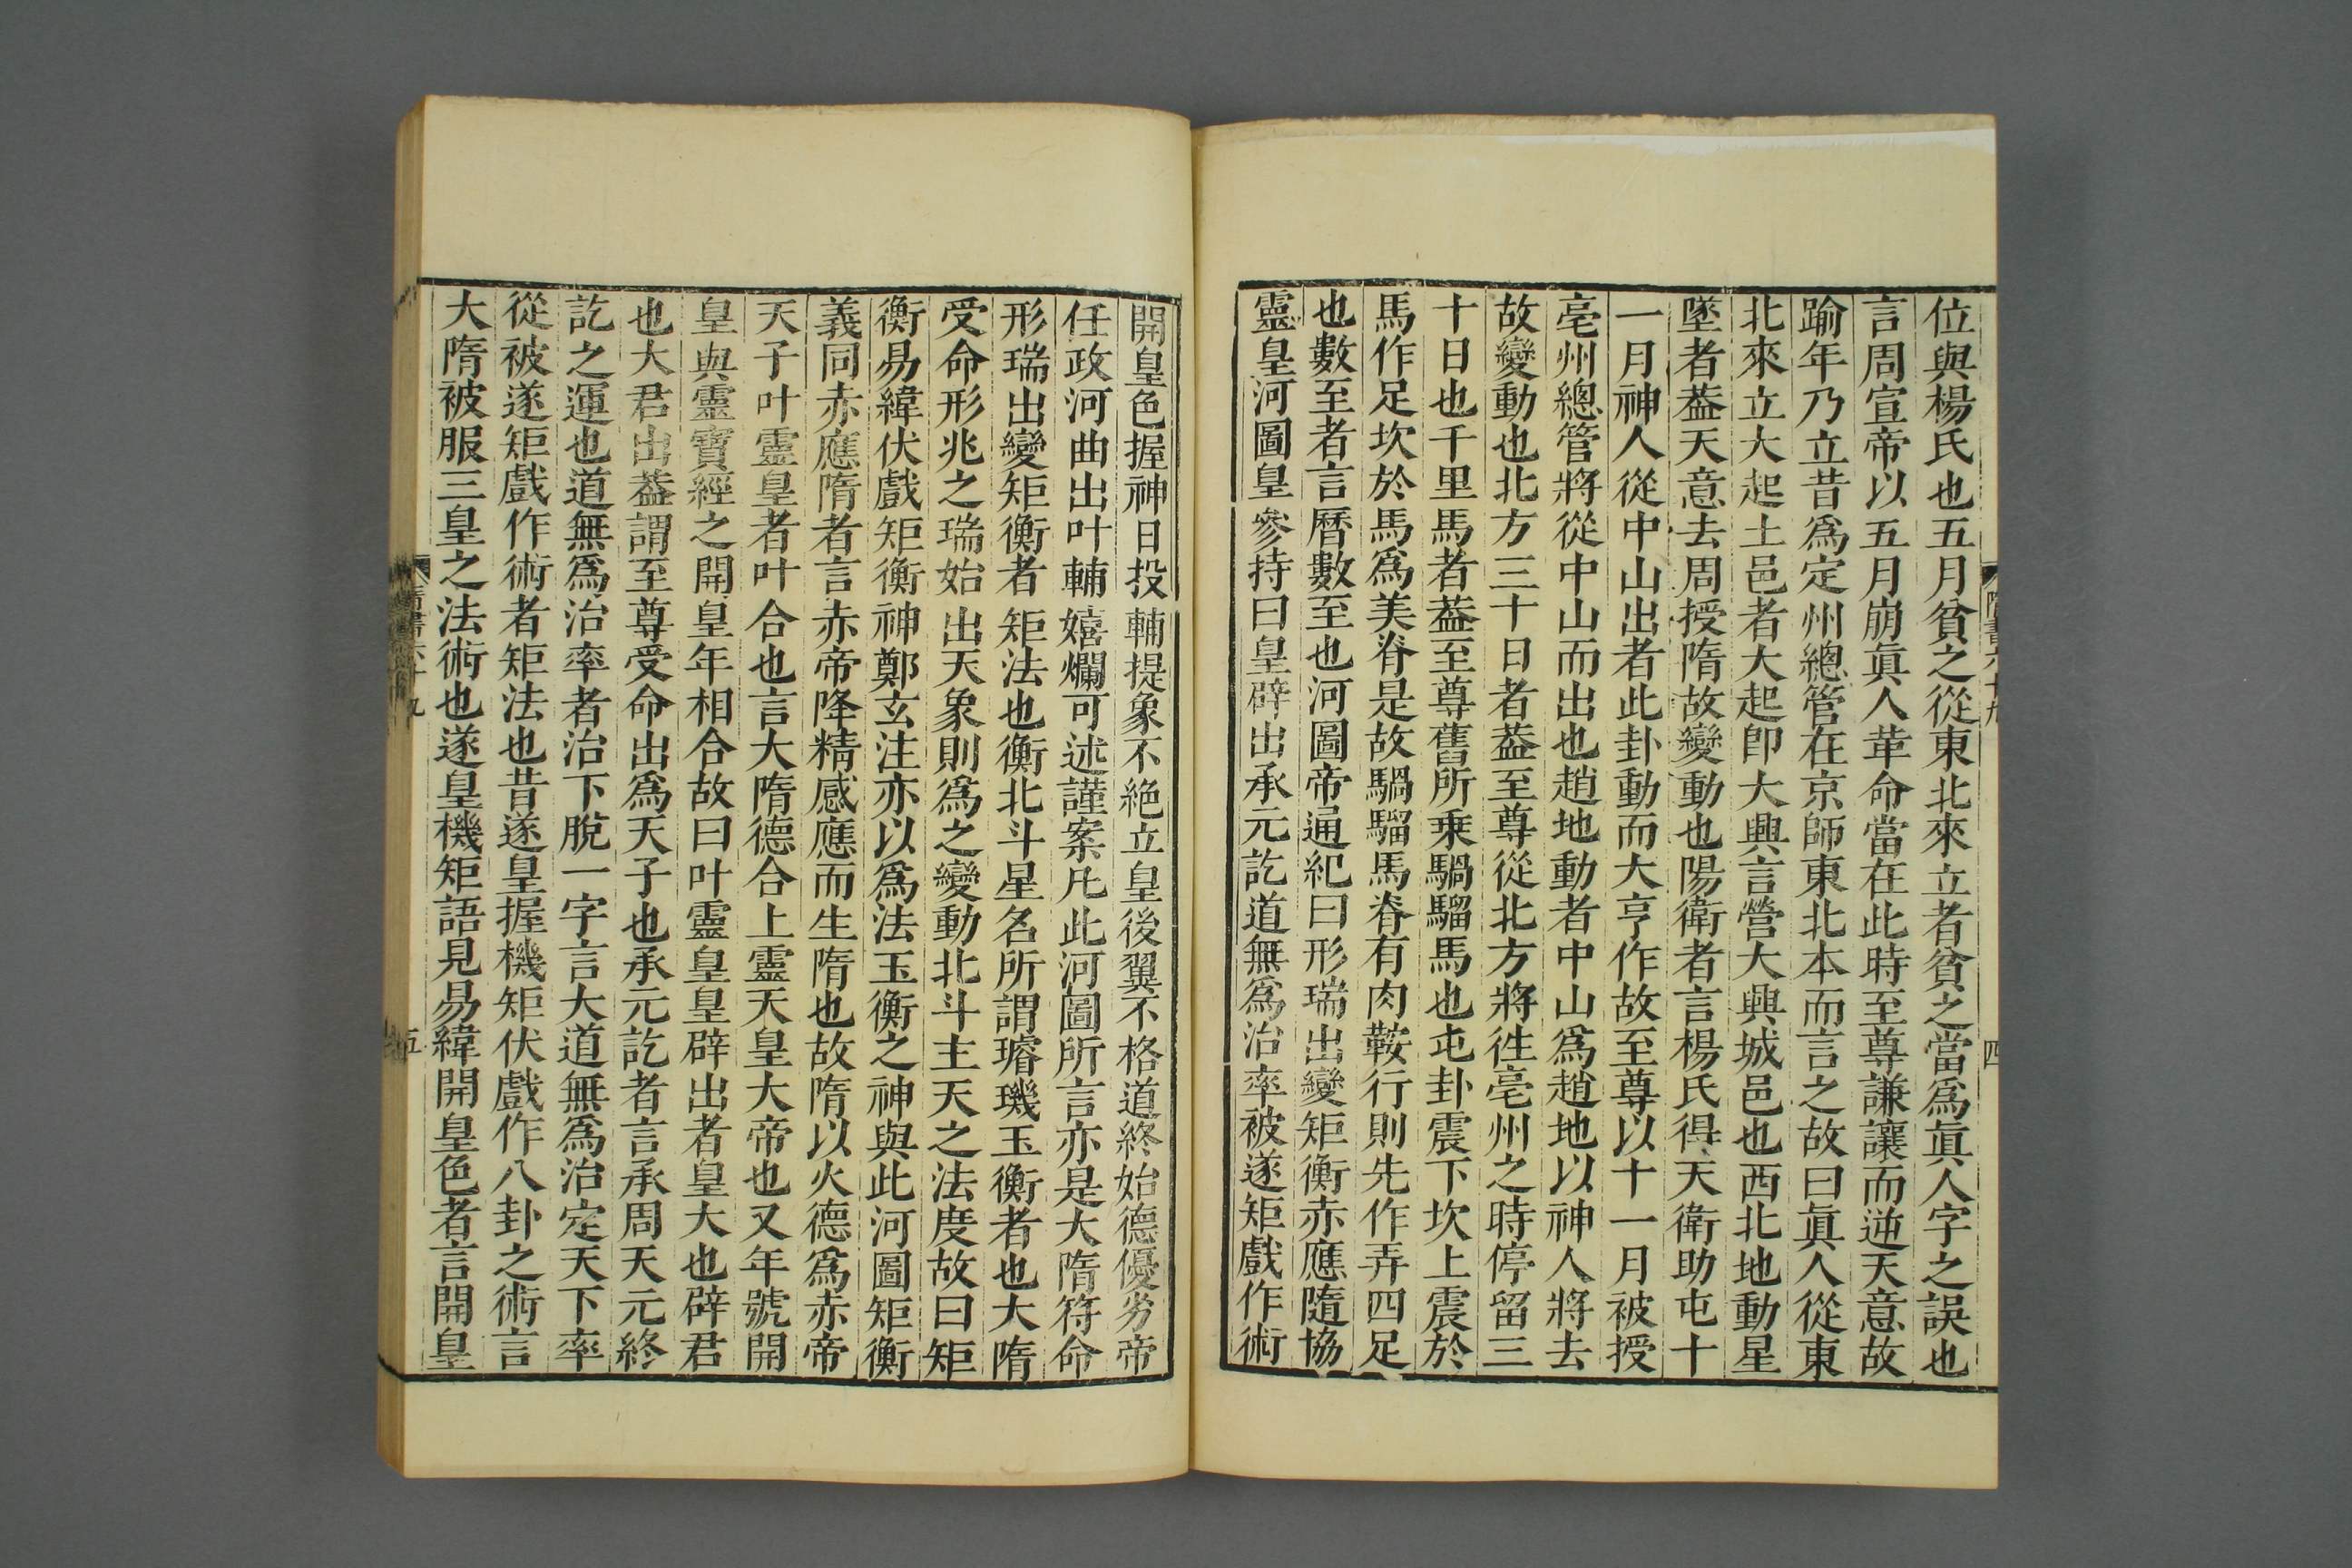 位與楊氏也五月貧之從東北來立者貧之當爲眞人字之誤也
言周宣帝以五月崩眞人革命當在此時至尊謙讓而逆天意故
踰年乃立昔爲定州總管在京師東北本而言之故曰眞人從東
北來立大起土邑者大起卽大興言營大興城邑也西北地動星
墜者葢天意去周授隋故變動也陽衛者言楊氏得天衛助屯十
一月神人從中山出者此卦動而大亨作故至尊以十一月被授
亳州總管將從中山而出也趙地動者中山爲趙地以神人將去
故變動也北方三十日者葢至尊從北方將徃亳州之時停留三
十日也千里馬者葢至尊舊所乗騧騮馬也屯卦震下坎上震於
馬作足坎於馬爲美脊是故騧騮馬脊有肉鞍行則先作弄四足
也數至者言曆數至也河圖帝通紀曰形瑞出變矩衡赤應隨協
靈皇河圖皇參持曰皇辟出承元訖道無爲治率被遂矩戲作術
隋書六十九
四
開皇色握神日投輔提象不絶立皇後翼不格道終始德優劣帝
任政河曲出叶輔嬉爛可述謹案凡此河圖所言亦是大隋符命
形瑞出變矩衡者矩法也衡北斗星名所謂璿璣玉衡者也大隋
受命形兆之瑞始出天象則爲之變動北斗主天之法度故曰矩
衡易緯伏戲矩衡神鄭玄注亦以爲法玉衡之神與此河圖矩衡
義同赤應隋者言赤帝降精感應而生隋也故隋以火德爲赤帝
天子叶靈皇者叶合也言大隋德合上靈天皇大帝也又年號開
皇與靈寶經之開皇年相合故曰叶靈皇皇辟出者皇大也辟君
也大君出葢謂至尊受命出爲天子也承元訖者言承周天元終
訖之運也道無爲治率者治下脫一字言大道無爲治定天下率
從被遂矩戲作術者矩法也昔遂皇握機矩伏戲作八卦之術言
大隋被服三皇之法術也遂皇機矩語見易緯開皇色者言開皇
隋書六十九
五